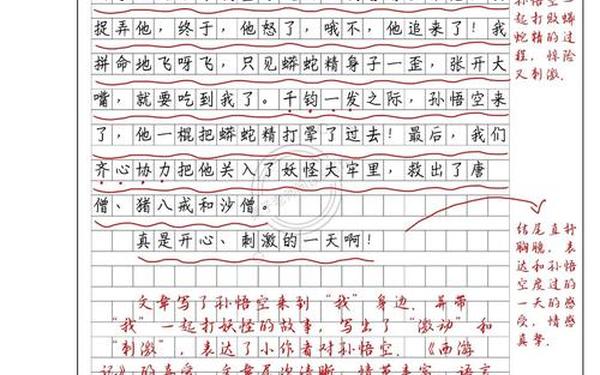 捉弄他，终于，他怒了，哦不，他追来了！我
拼命地飞呀飞，只见蟒蛇精身子一歪，张开大
嘴，就要吃到我了。千钧一发之际，孙悟空来
了，他一棍把蟒蛇精打晕了过去！最后，我们
齐心协力把他关入了妖怪大牢里，救出了唐
僧、猪八戒和沙僧。
真是开心、刺激的一天啊！
文章写了孙悟空来到“我”身边，并带
“我”一起打妖怪的故事，写出了“激动”和
“刺激”，表达了小作者对孙悟空、《西游
记》的喜爱。文章层次清晰，情节丰富，语言
孙悟空一
起打败蟒
蛇精的过
程，惊险
又刺激。
结尾直抒
胸臆，表
达和孙悟
空度过的
一天的感
受，情感
真挚。